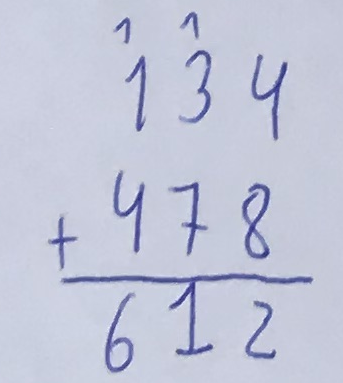 1 1
134
+ 478
612